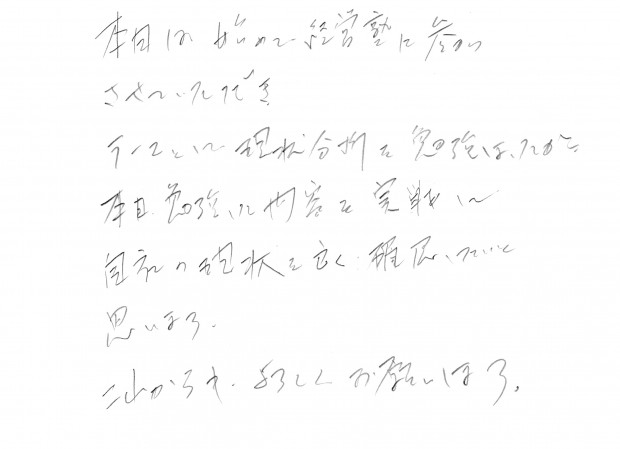 本日は始めて経営塾に参加
させていただき
テーマとして現状分析を勉強しましたが
本日勉強した内容を実践して
自社の現状を良く確認したいと
思います。
これからも、よろしくお願いします。